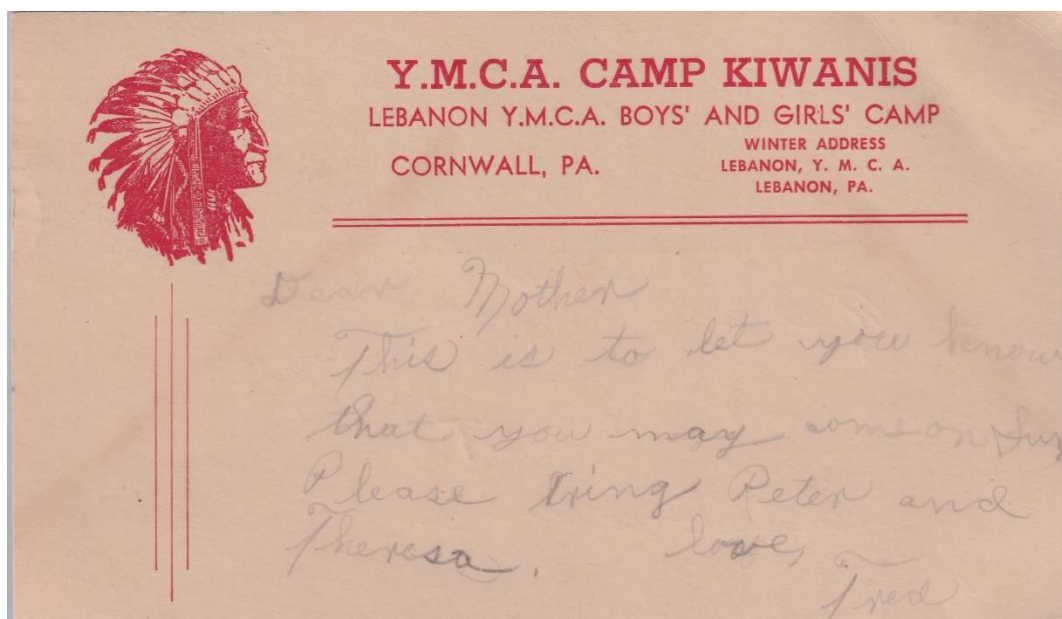 Y.M.C.A. CAMP KIWANIS
LEBANON Y.M.C.A. BOYS' AND GIRLS' CAMP
CORNWALL, PA.
WINTER ADDRESS
LEBANON, Y. M. C. A.
LEBANON, PA.
Dear Mother
This is to let you know
that you may some on Sun
Please bring Peter and
Theresa. love,
Fred